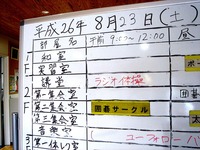 平成26年 8月23日(土)
部屋名 午前 9:00〜12:00 昼
1 和室
実習室
F 講堂 ラジオ体操
2 第一集会室 囲
第二集会室 囲碁サークル
F 第三集会室
音楽室
3 第一休い室 ユーフォロー